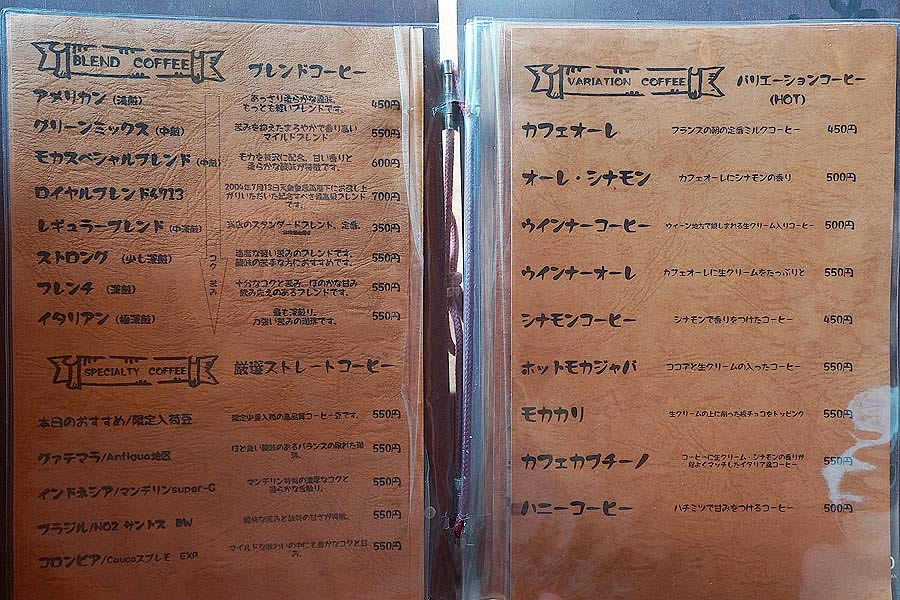 BLEND COFFEE ブレンドコーヒー
アメリカン (浅煎) あっさり柔らかな風味。 450円
もっとも軽いブレンドです。
グリーンミックス (中煎) 苦みを抑えたまろやかで香り高い 550円
マイルドブレンド
モカスペシャルブレンド (中煎) モカを贅沢に配合。甘い香りと 600円
柔らかな酸味が特徴です。
ロイヤルブレンド4713 2004年7月13日 700円
がりいただいた記念すべき最高級ブレンド
です。
レギュラーブレンド (中深煎) 当店のスタンダードブレンド。定番。 350円
ストロング (少し深煎) 適度な軽い苦みのブレンドです。 550円
酸味の苦手な方におすすめです。
フレンチ (深煎) 十分なコクと苦み、ほのかな甘み 550円
飲み応えのあるブレンドです。
イタリアン (極深煎) 最も深煎り。 550円
力強い苦みの珈琲です。
コク 苦み
SPECIALTY COFFEE 厳選ストレートコーヒー
本日のおすすめ/限定入荷豆 限定少量入荷の高品質コーヒー豆です。 550円
グァテマラ/Antigua地区 ほど良い酸味のあるバランスの取れた珈 550円
琲。
インドネシア/マンデリンsuper-G マンデリン特有の濃厚なコクと 550円
滑らかな舌触り。
ブラジル/NO2 サントス BW 軽快な苦みと独特の甘さが特徴。 550円
コロンビア/Caucaスプレモ EXP マイルドな味わいの中にも豊かなコクと甘 550円
み。
VARIATION COFFEE バリエーションコーヒー
(HOT)
カフェオーレ フランスの朝の定番ミルクコーヒー 450円
オーレ・シナモン カフェオーレにシナモンの香り 500円
ウインナーコーヒー ウィーン地方で親しまれる生クリーム入りコーヒー 500円
ウインナーオーレ カフェオーレに生クリームをたっぷりと 550円
シナモンコーヒー シナモンで香りをつけたコーヒー 450円
ホットモカジャバ ココアと生クリームの入ったコーヒー 550円
モカカリ 生クリームの上に削った板チョコをトッピング 550円
カフェカプチーノ コーヒーに生クリーム・シナモンの香りが 550円
程よくマッチしたイタリア風コーヒー
ハニーコーヒー ハチミツで甘みをつけるコーヒー 500円